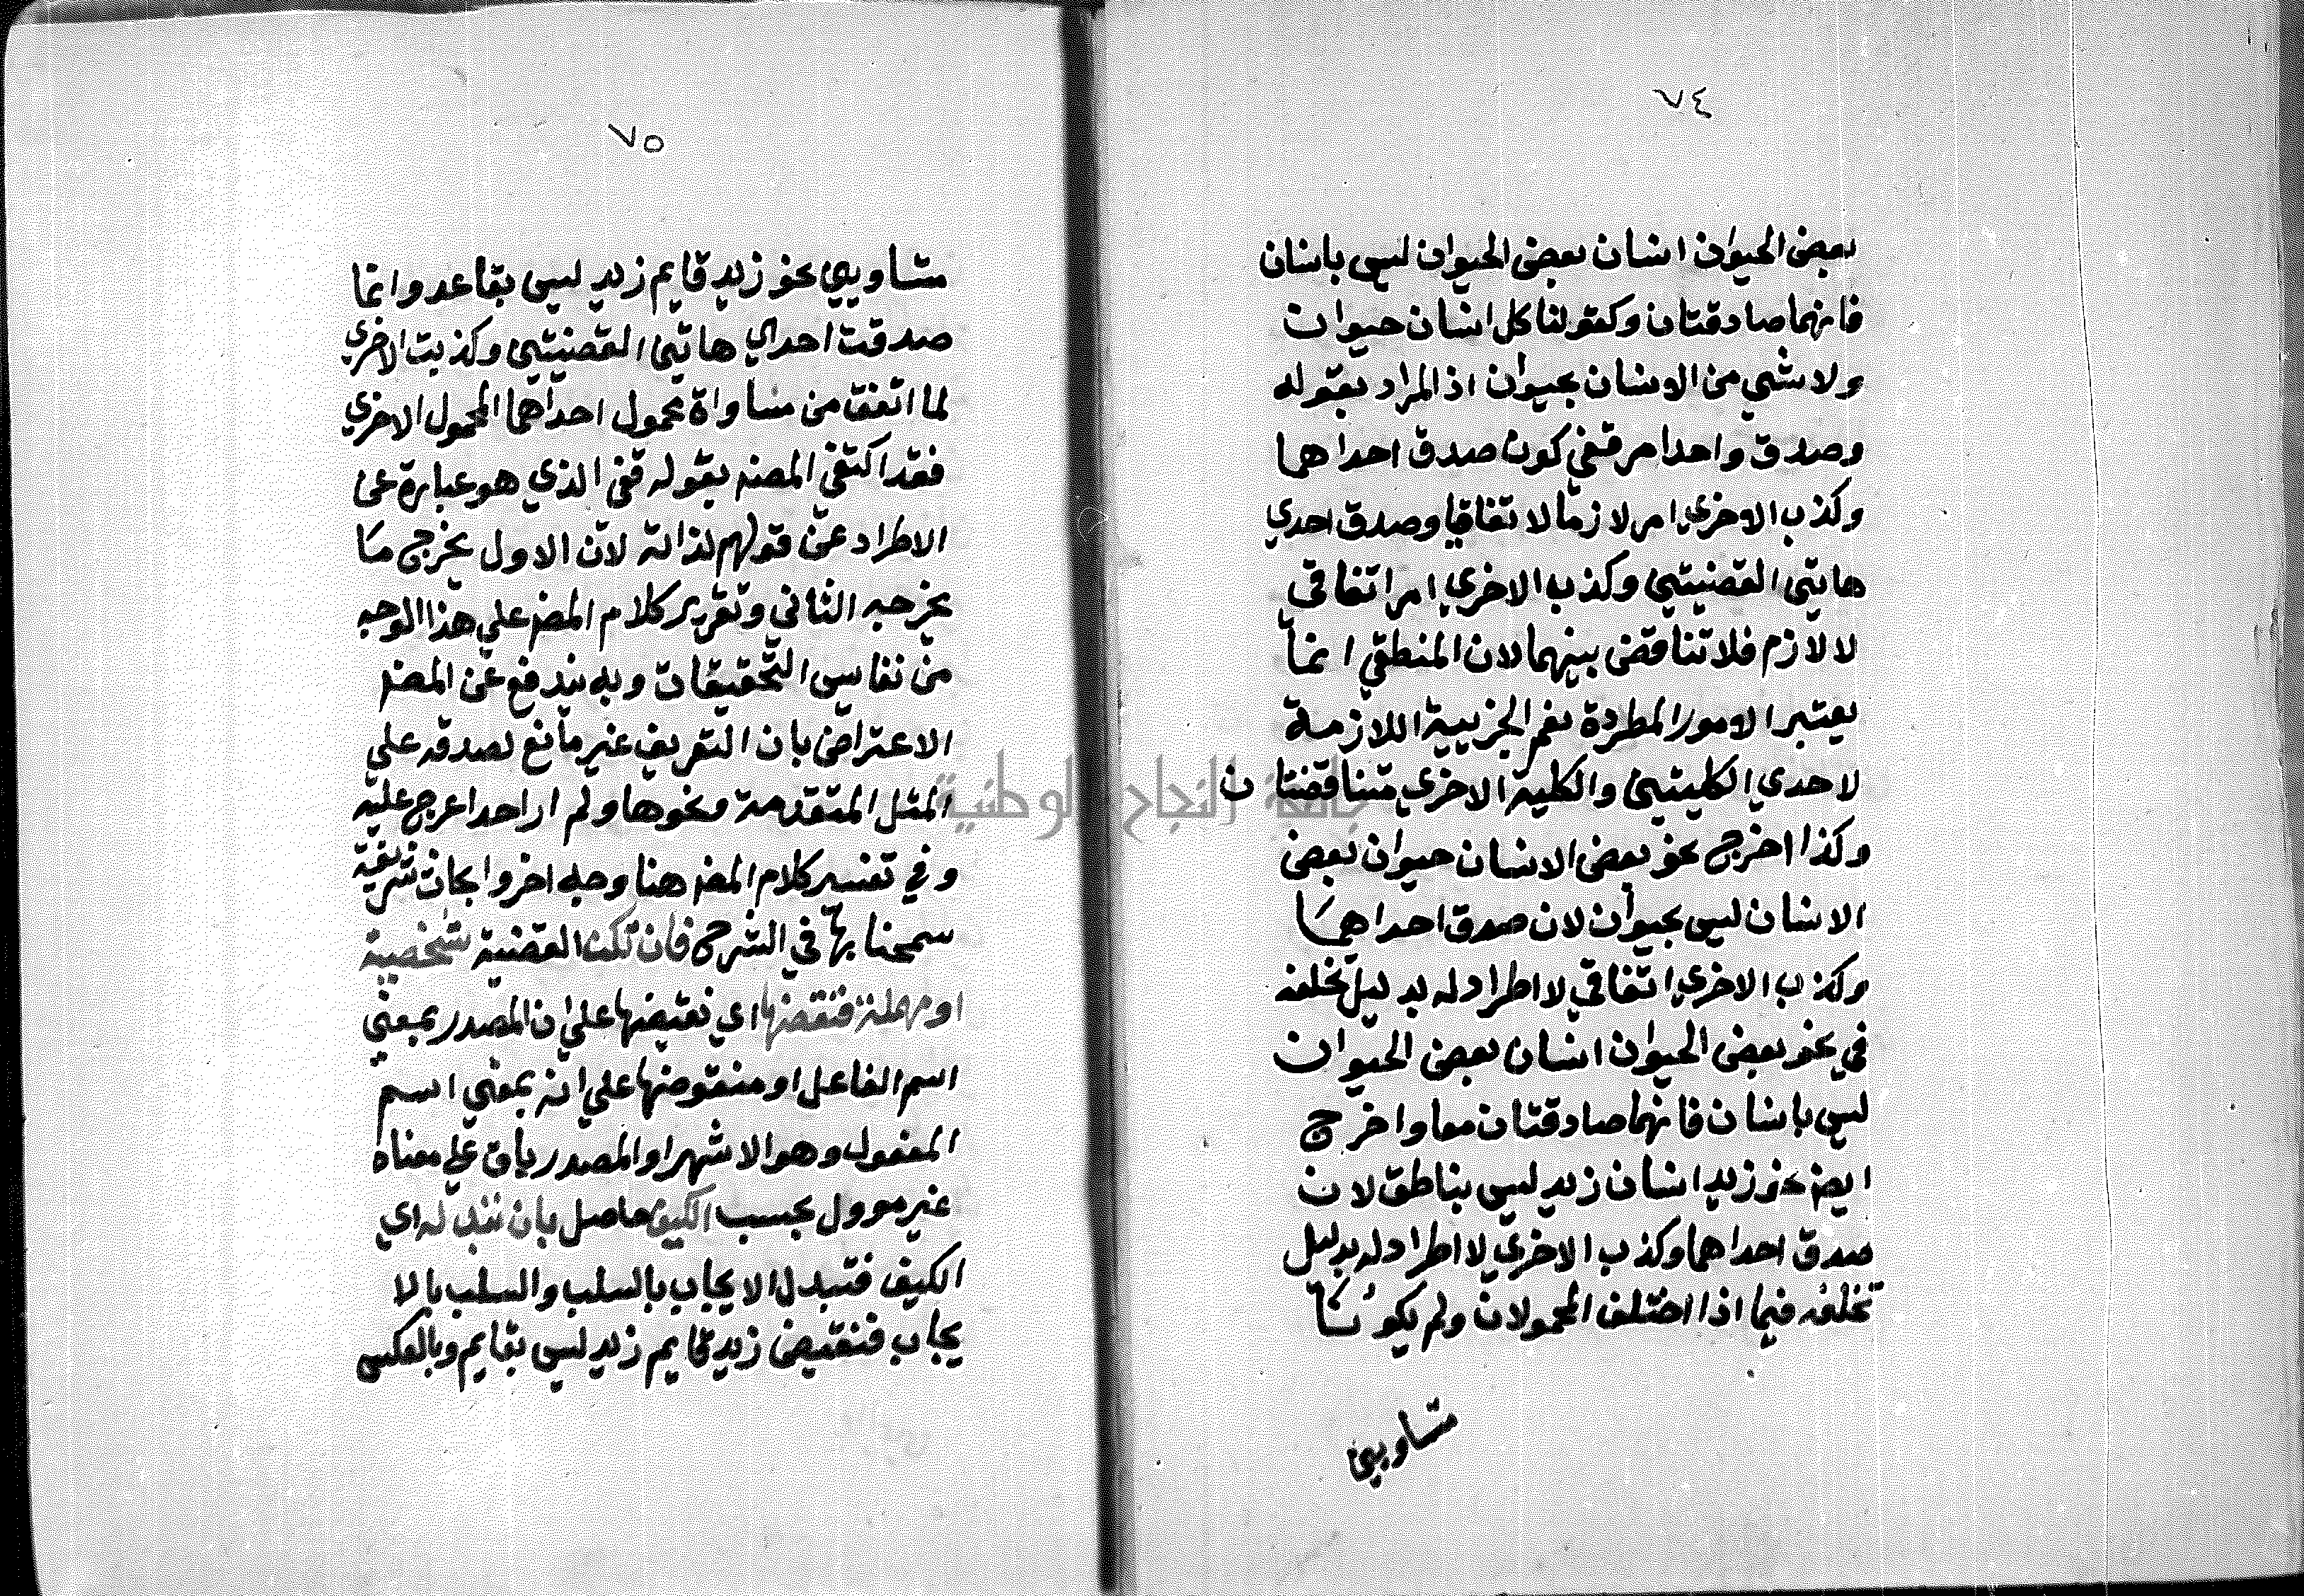 ٧٤
بعض الحيوان انسان بعض الحيوان ليس بانسان
فانهما صادقتان وكقولنا كل انسان حيوان
ولا شي من الانسان بحيوان اذ المراد بقوله
وصدق واحد امر قفي كون صدق احداهما
وكذب الاخري امر لازما لا تفاقيا وصدق احدي
هاتين القضيتين وكذب الاخري امر اتفاقي
لا لازم فلا تناقض بينهما لان المنطقي انما
يعتبر الامور المطردة نعم الجزيية اللازمة
لاحدي الكليتين والكلية الاخري متناقضتان
وكذا اخرج نحو بعض الانسان حيوان بعض
الانسان ليس بحيوان لان صدق احداهما
وكذب الاخري اتفاقي لا اطراد له بدليل تخلفه
في نحو بعض الحيوان انسان بعض الحيوان
ليس بانسان فانهما صادقتان معا واخرج
ايض نحو زيد انسان زيد ليس بناطق لان
صدق احداهما وكذب الاخري لا اطراد له بدليل
تخلفه فيما اذا اختلف المحمولان ولم يكونا
متساويين
٧٥
متساويين نحو زيد قايم زيد ليس بقاعد وانما
صدقت احدي هاتين القضيتين وكذبت الاخري
لما اتفق من مساواة محمول احداهما المحمول الاخري
فقد اكتفي المصنه بقوله قفي الذي هو عبارة عن
الاطراد عن قولهم لذاته لان الاول يخرج ما
يخرجه الثاني وتقرير كلام المصنه علي هذا الوجه
من نفايس التحقيقات وبه يندفع عن المصنه
الاعتراض بان التعريف غير مانع لصدقه علي
المثل المتقدمة ونحوها ولم ار احدا عرج عليه
وفي تفسير كلام المصنه هنا وجه اخر وابحاث شريفة
سمحنا بها في الشرح فان تكن القضية شخصية
او مهملة فنقضها اي نقيضها علي ان المصدر بمعني
اسم الفاعل او منقوضها علي انه بمعني اسم
المفعول وهو الاشهر او المصدر باق علي معناه
غير موول بحسب الكيف حاصل بان تبدله اي
الكيف فتبدل الايجاب بالسلب والسلب بالا
يجاب فنقيض زيد قايم زيد ليس بقايم وبالعكس
جامعة النجاح الوطنية